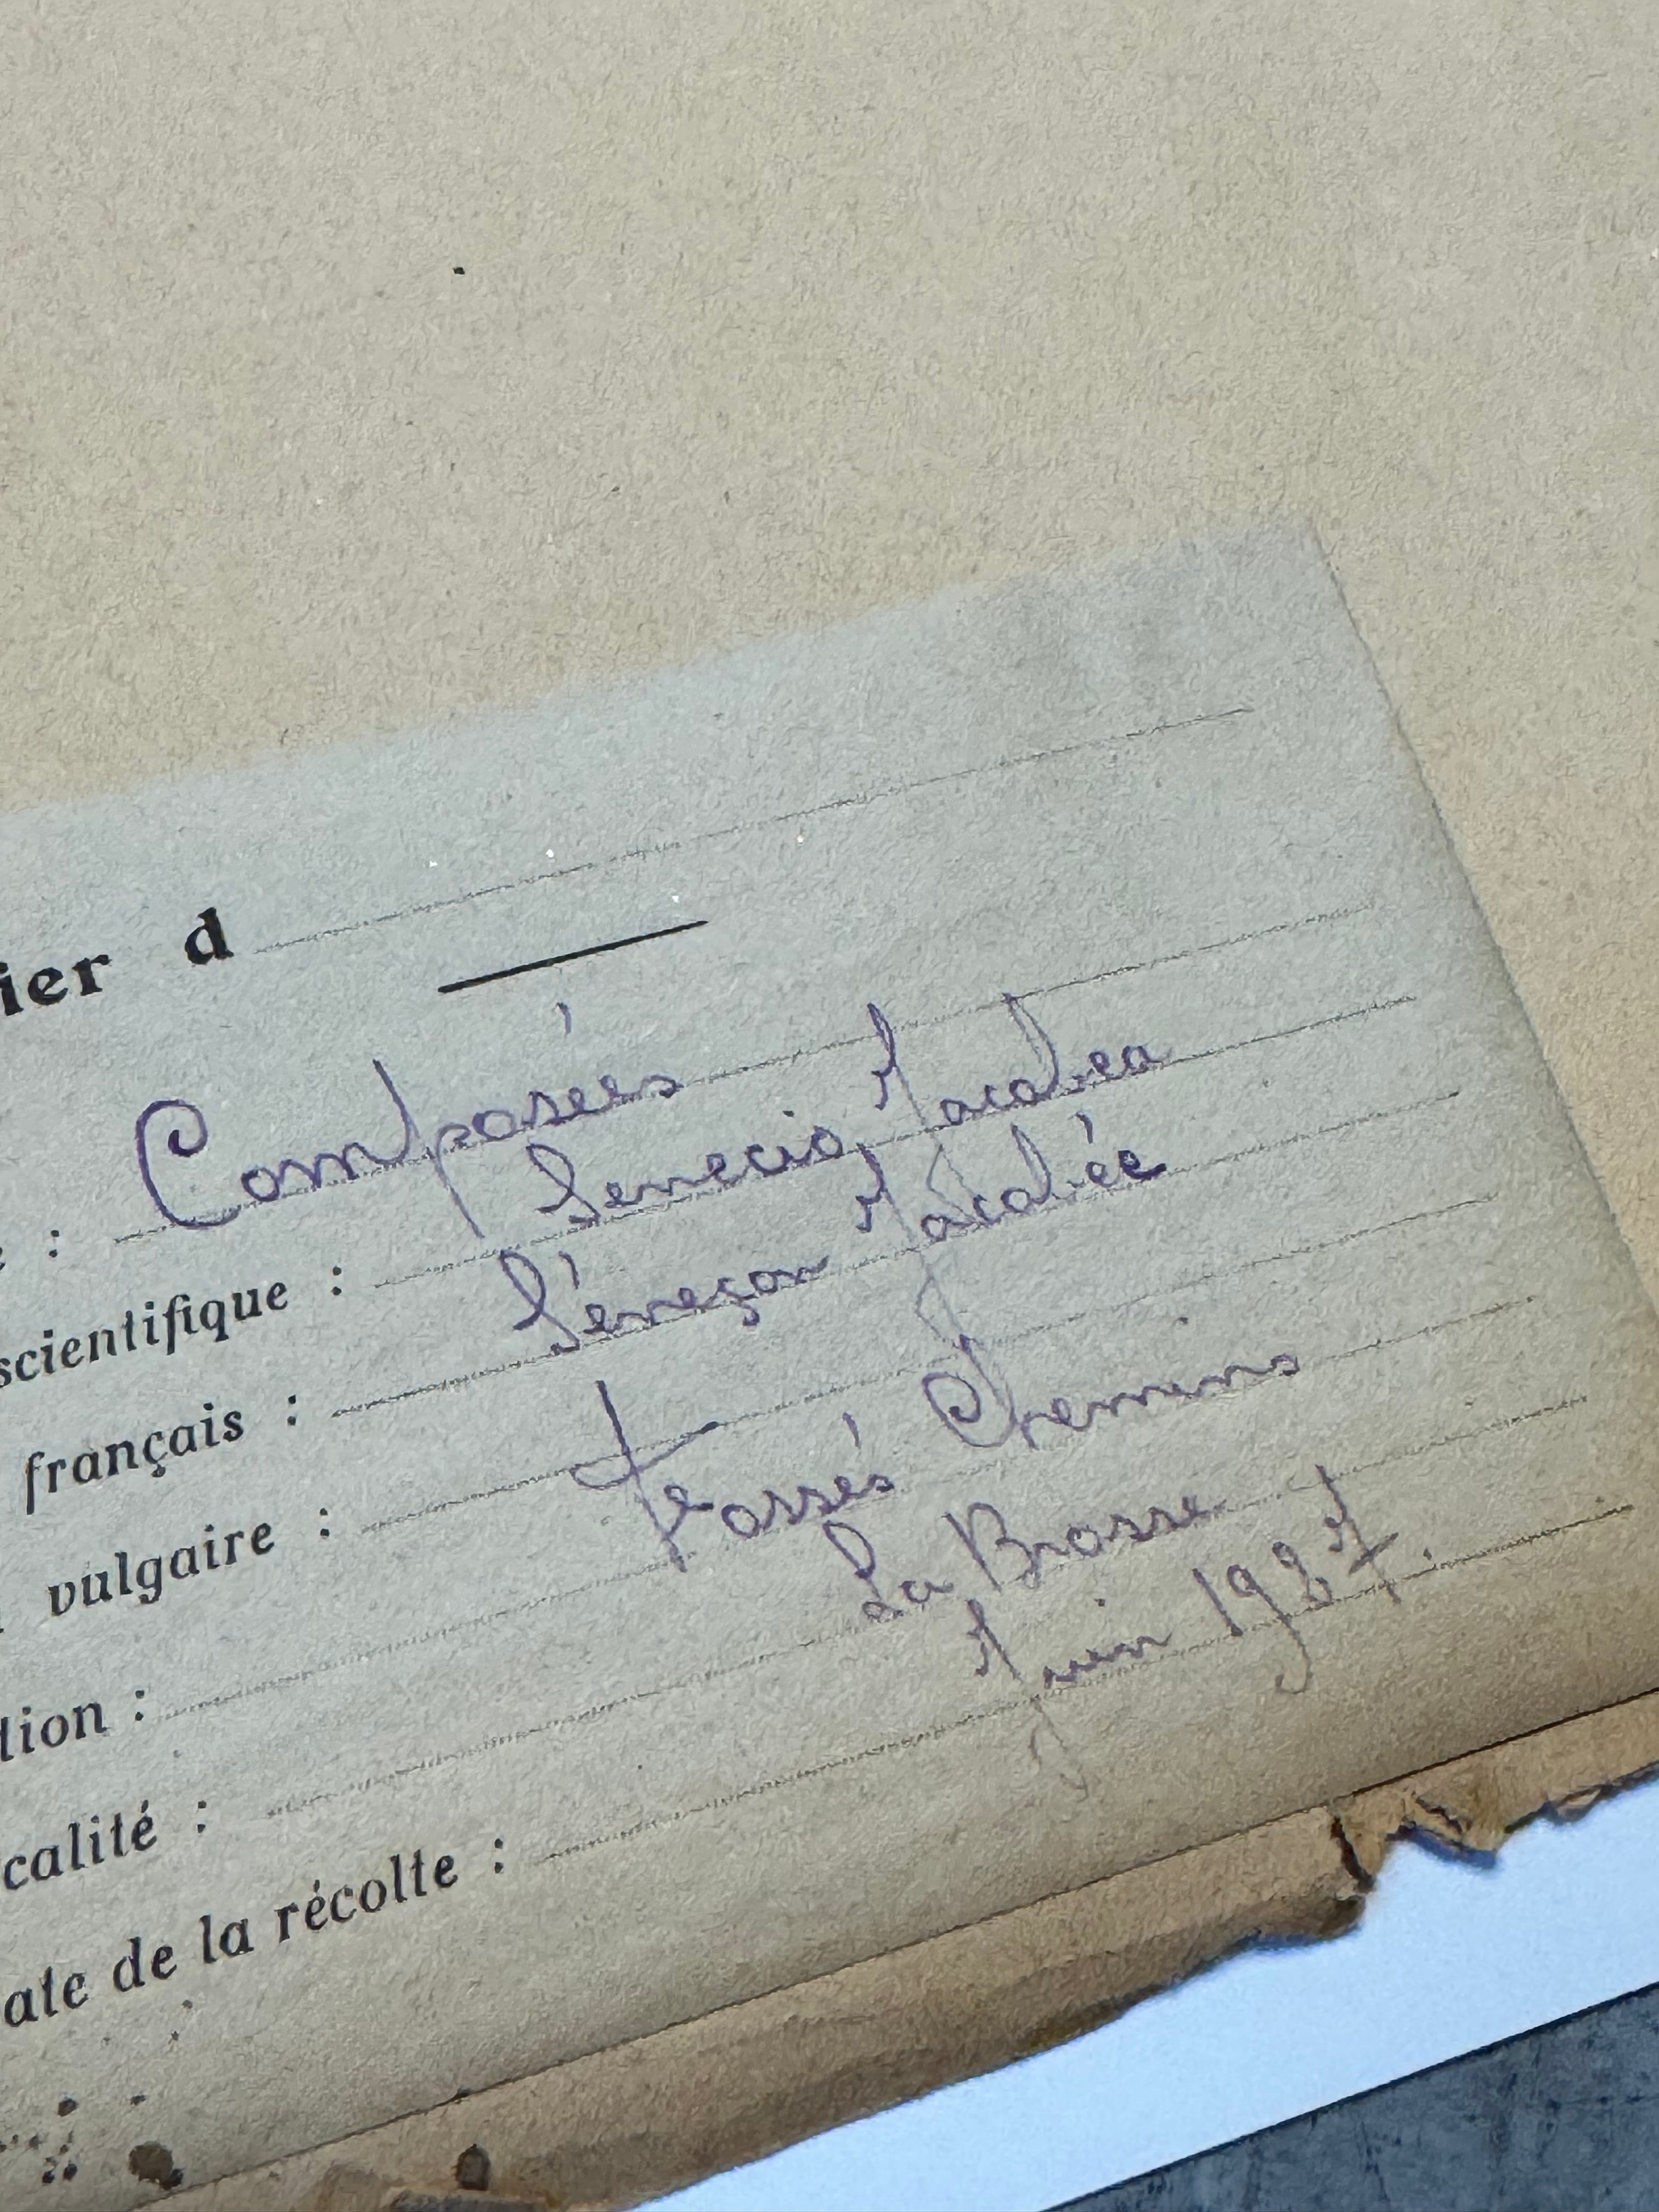 ier d
e : Composées
scientifique : Senecio Jacobea
français : Séneçon Jacobée
vulgaire :
tion : Fossés Chemins
calité : La Brosse
ate de la récolte : Juin 1937.